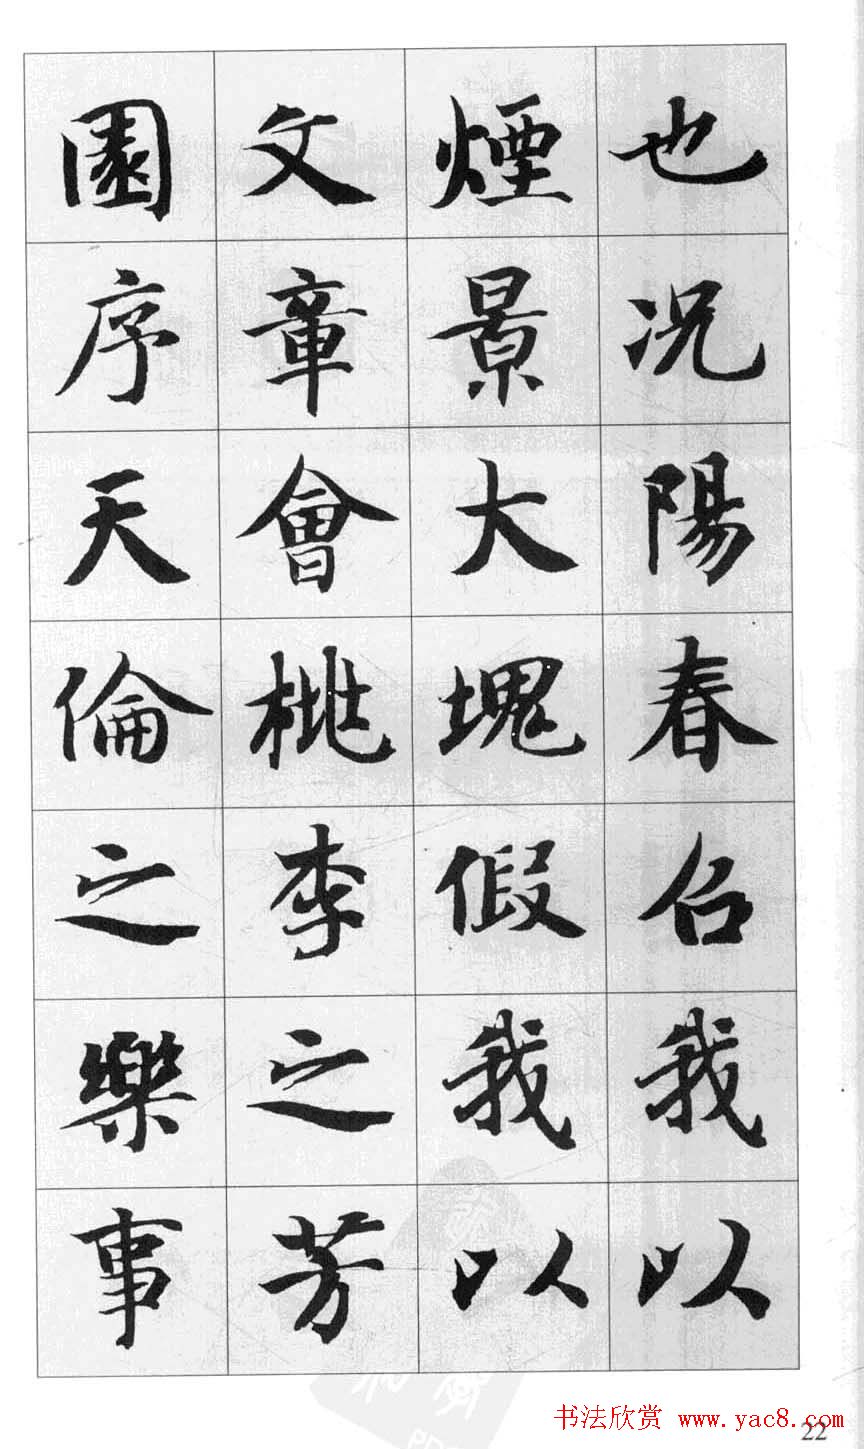 也况陽春召我以
煙景大塊假我以
文章會桃李之芳
園序天倫之樂事
书法欣赏 www.yac8.com
22